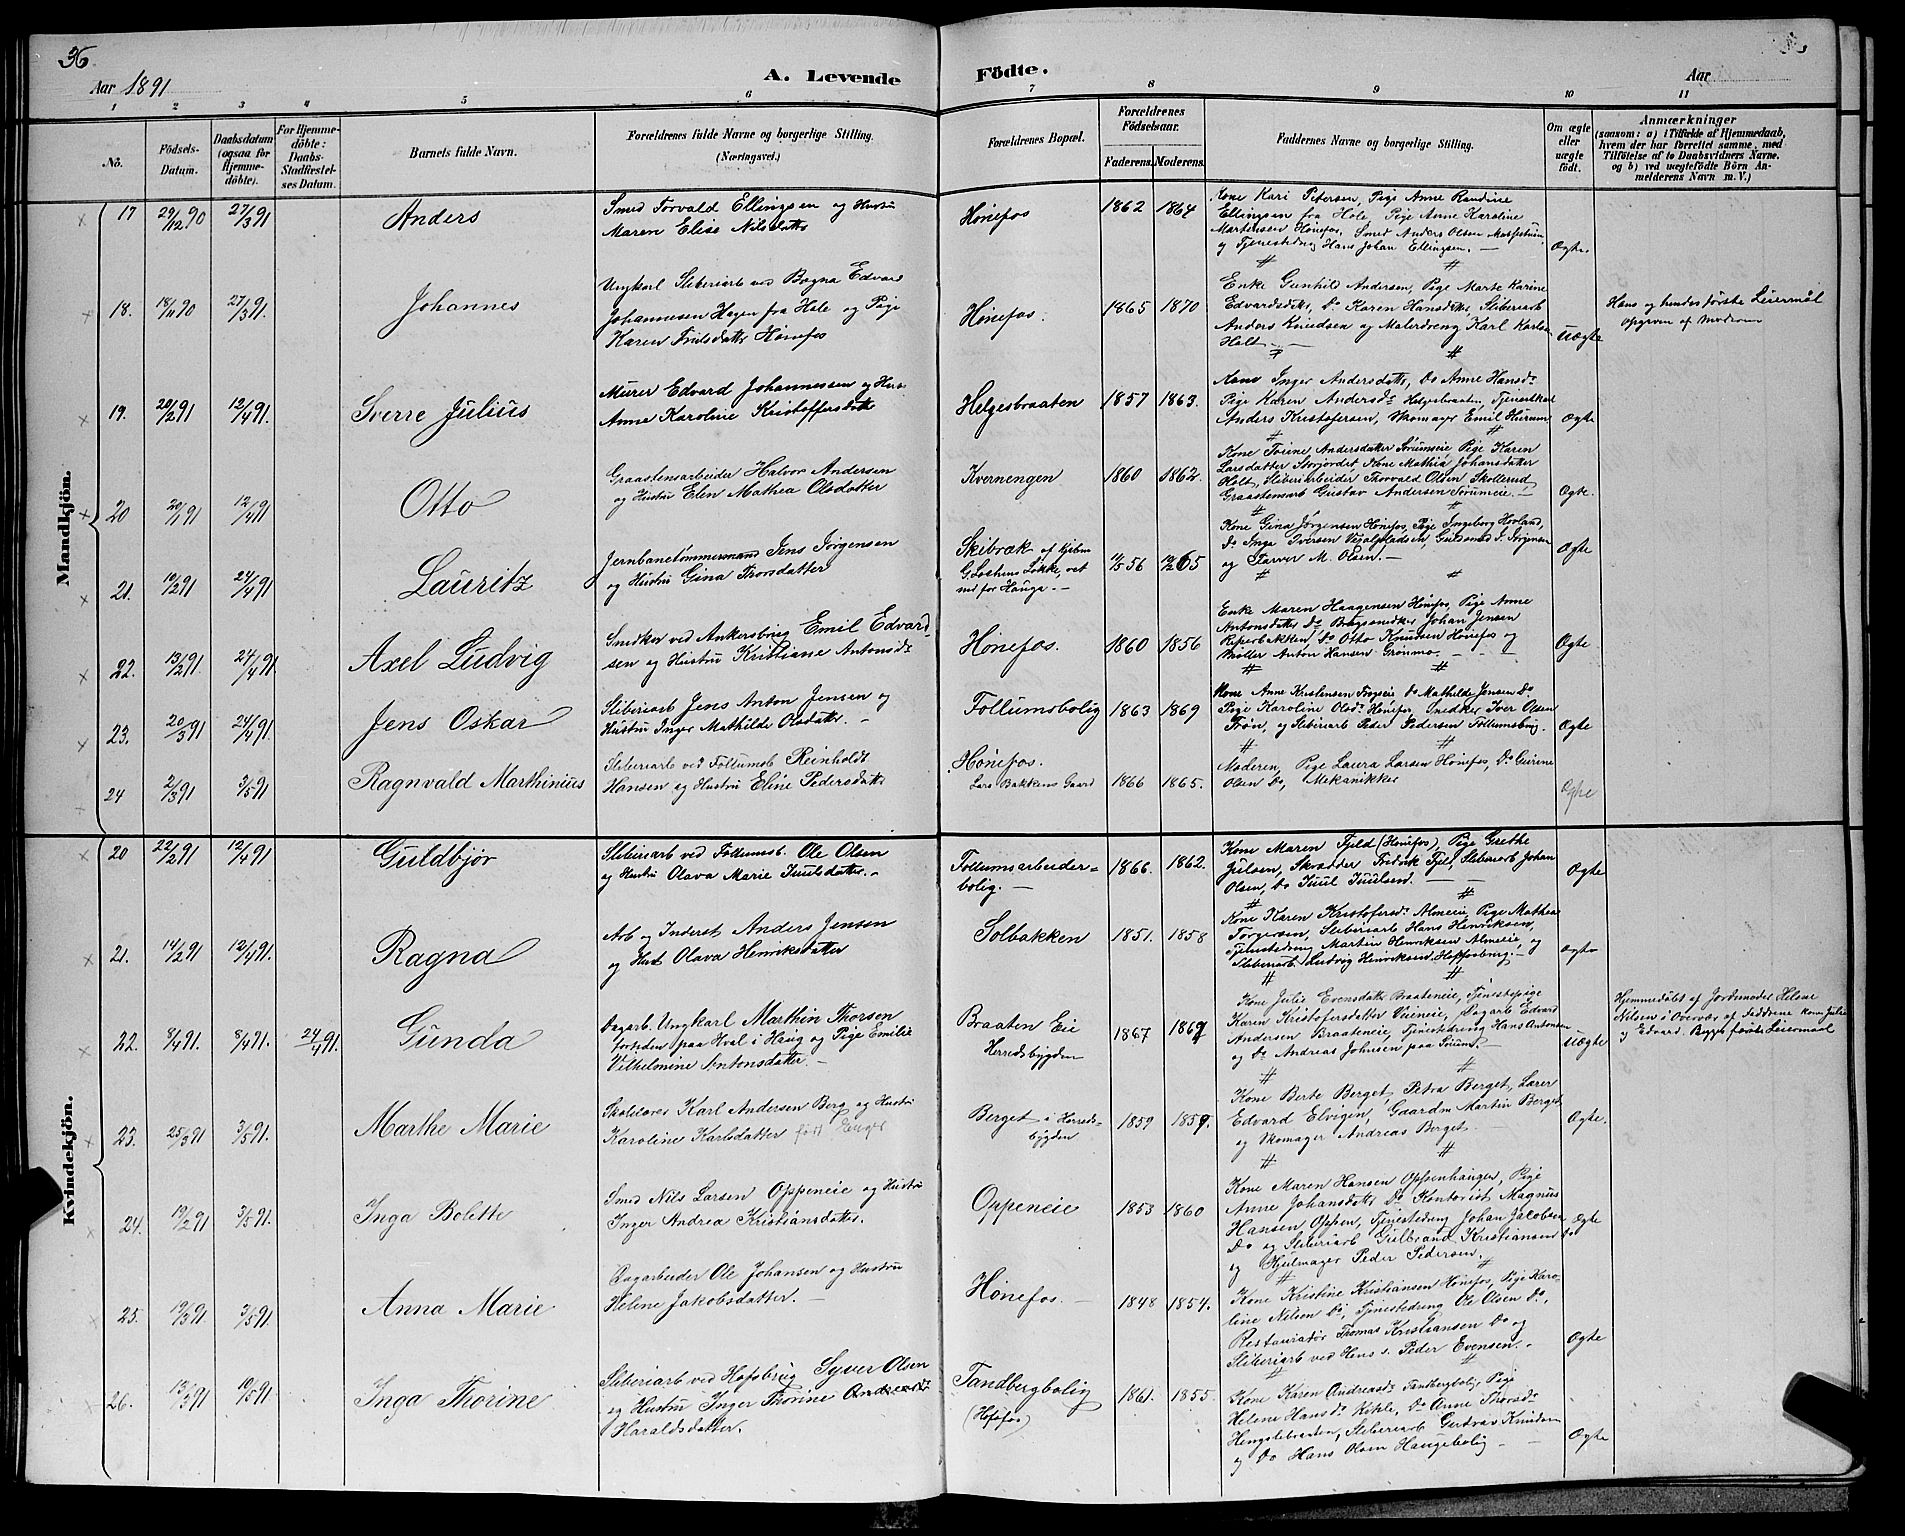 36
Aar 1891
A. Levende
Födte.
Aar
1 2 3 4 5 6 7 8 9 10 11
No.
Födsels-
Datum.
Daabsdatum
(ogsaa for
Hjemme-
döbte).
For Hjemme-
döbte:
Daabs-
Stadfæstel-
ses Datum.
Barnets fulde Navn.
Forældrenes fulde Navne og borgerlige Stilling.
(Næringsvei.)
Forældrenes Bopæl.
Forældrenes
Födselsaar.
Faderens. Moderens.
Faddernes Navne og borgerlige Stilling.
Om ægte
eller
uægte
födt.
Anmærkninger
(saasom: a) i Tilfælde af Hjemmedaab,
hvem der har forrettet samme, med
Tilföielse af to Daabsvidners Navne,
og b) ved uægtefödte Börn An-
melderens Navn m. V.)
Mandkjön.
17 29/12 90 27/3 91 Anders
Smed Torvald Ellingsen og Hustru
Maren Elise Nilsdatter
Hönefos 1862 1864
Kone Kari Petersen, Pige Anne Randine
Ellingsen fra Hole, Pige Anne Karoline
Martinsen Hönefos, Smed Anders Olsen
og Tjenestedreng Hans Johan Ellingsen. —
Ægte.
18. 18/11 90 27/3 91. Johannes
Ungkarl Sliberiarb ved Bagna Edvard
Johannesen Hagen fra Hole og Pige
Karen Hönefos
Hönefos. 1865 1870
Enke Gunhild Andersen, Pige Marte Karine
Edvardsdtr, Do Karen Hansdtr, Sliberiarb
Anders Knudsen og Malerdreng Karl Karlsen
Holt. —
Uægte
Hans og hendes förste Leiermål
opgiven af Moderen
19. 20/2 91 12/4 91. Sverre Julius
Murer Edvard Johannessen og Hust
Anne Karoline Kristoffersdatter
Helgesbraaten 1857 1863.
Kone Inger Andersdatter, Do Anne Hansd.
Pige Karen Andersd. Helgesbraaten, Tjenestkarl
Anders Kristofersen, Skomager Emil Hurum
Ægte
20 20/1 91 12/4 91 Otto
Graastensarbeider Halvor Andersen
og Hustru Elen Mathea Olsdatter
Kvernengen 1860 1862.
Kone Andersdatter Sörumeie Pige Karen
Larsdatter Storjordet, Kone Mathia Johansdatter
Holt, Sliberiarbeider Thorvald Olsen Skollerud
Graastensarb Gustav Andersen Sörumeie. —
Ægte.
21. 10/2 91 24/4 91 Lauritz
Jernbanetömmermand Jens Jörgensen
og Hustru Gina Torsdatter
Skibræk
vest
for Hauga. —
56 65
Kone Gina Jörgensen Hönefos, Pige Ingeborg Hovland,
Do Inga Iversen Guldsmed J. Jörgensen
og Farver M. Olsen. —
Ægte
22. 13/2 91. 24/4 91. Axel Ludvig
Snidker ved Ankersbrug Emil Edvard-
sen og Hustru Kristiane Antonsdtr
Hönefos. 1860 1856
Enke Maren Haagensen Hönefos, Pige Anne
Antonsdatter Do Johan Jensen
Reperbakken, Do Otto Knudsen Hönefos og
Möller Anton Hansen Grönmo.
Ægte
23. 20/3 91 24/4 91 Jens Oskar
Sliberiarb Jens Anton Jensen og
Hustru Inger Mathilde Olsdatter. —
Follumsbolig 1863 1869
Kone Anne Kristensen Do Mathilde Jensen Do
Pige Karoline Olsd. Hönefos, Snedker Iver Olsen
og Sliberiarb Peder Pedersen Follumsbrug.
Ægte
24 2/3 91 3/5 91 Ragnvald Marthinius
Sliberiarb ved Follumsb Reinholdt
Hansen og Hustru Eline Pedersdatter
Hönefos.
Lars Bakkens Gaard 1866 1865.
Moderen, Pige Laura Larsen Hönefos, Do
Olsen Do, Mekanikker
Ægte
Kvindekjön.
20 22/2 91 12/4 91 Guldbjör
Sliberiarb ved Follumsb. Ole Olsen
og Hustru Olava Marie Juulsdatter. —
Follumsarbeider-
bolig. — 1866. 1862.
Kone Maren Fjeld (Hönefos), Pige Grethe
Julsen, Skrædder Fredrik Fjel, Sliberiarb Johan
Olsen, Do Juul Juulsend. —
Ægte
21. 14/2 91 12/4 91. Ragna
Arb og Inderst Anders Jensen
og Hust Olava Henriksdatter
Solbakken 1851. 1858
Kone Karen Kristofersd. Almeie, Pige Mathea
Torgersen, Sliberiarb Hans Henriksen,
Tjenestedreng Martin Henriksen Almeie, og
Sliberiarb. Ludvig Henriksen Hofsfosbrug. —
ægte
22. 8/4 91. 8/4 91. 24/4 91. Gunda
Dagarb. Ungkarl Marthin Thorsen
fortiden paa Hval i Haug og Pige Emilie
Vilhelmine Antonsdatter. —
Braaten Eie
Herredsbygden 1867 1869
Kone Julie Evensdatter Braateneie, Tjenestepige
Karen Kristofersdatter Dagarb Edvard
Andersen Braateneie, Tjenestedreng Hans Antonsen
og Do Andreas Johnsen paa Sörum. —
Uægte
Hjemmedöbt af Jordemoder Helene
Nilsen i Overvær af Faddrene Kone Julie
og Edvard. Begges förste Leiermaal
23. 25/3 91 3/5 91. Marthe Marie
Skolelærer Karl Andersen Berg og Hustru
Karoline Karlsdatter född Enger
Berget i Herreds-
bygden 1859 1859.
Kone Berte Berget, Petra Berget, Lærer
Edvard Elvigen, Gaardm Martin Berget
og Skomager Andreas Berget. —
Ægte.
24. 19/2 91 3/5 91. Inga Bolette
Smed Nils Larsen Oppeneie og Hustru
Inger Andrea Kristiansdatter.
Oppeneie 1853 1860
Kone Maren Hansen Oppenhangen, Pige
Anne Johansdatter Do Kontorist Magnus
Hansen Oppen, Tjenestedreng Johan Jacobsen
Do og Sliberiarb Gulbrand Kristiansen Do
og Hjulmager Peder Pedersen.
Ægte
25. 19/3 91 3/5 91. Anna Marie
Dagarbeider Ole Johansen og Hustru
Helene Jakobsdatter. —
Hönefos. — 1848 1854.
Kone Kristine Kristiansen Hönefos, Pige Karo-
line Nilsen Do, Tjenestedreng Ole Olsen Do,
Restauratör Thomas Kristiansen Do og
Sliberiarb ved Hens s. Peder Evensen. —
Ægte
26. 13/3 91 10/5 91. Inga Thorine
Sliberiarb ved Hofsbrug Syver Olsen
og Hustru Inger Thorine Andrea
Haraldsdatter.
Tandbergbolig
(Höfos) 1861. 1855.
Kone Karen Andreasd. Tandbergbolig Pige
Helene Hansd. Kihle, Do Anne Thorsd.
Hengslebraaten, Sliberiarb Knudsen
og Do Hans Olsen Haugebolig —
Ægte